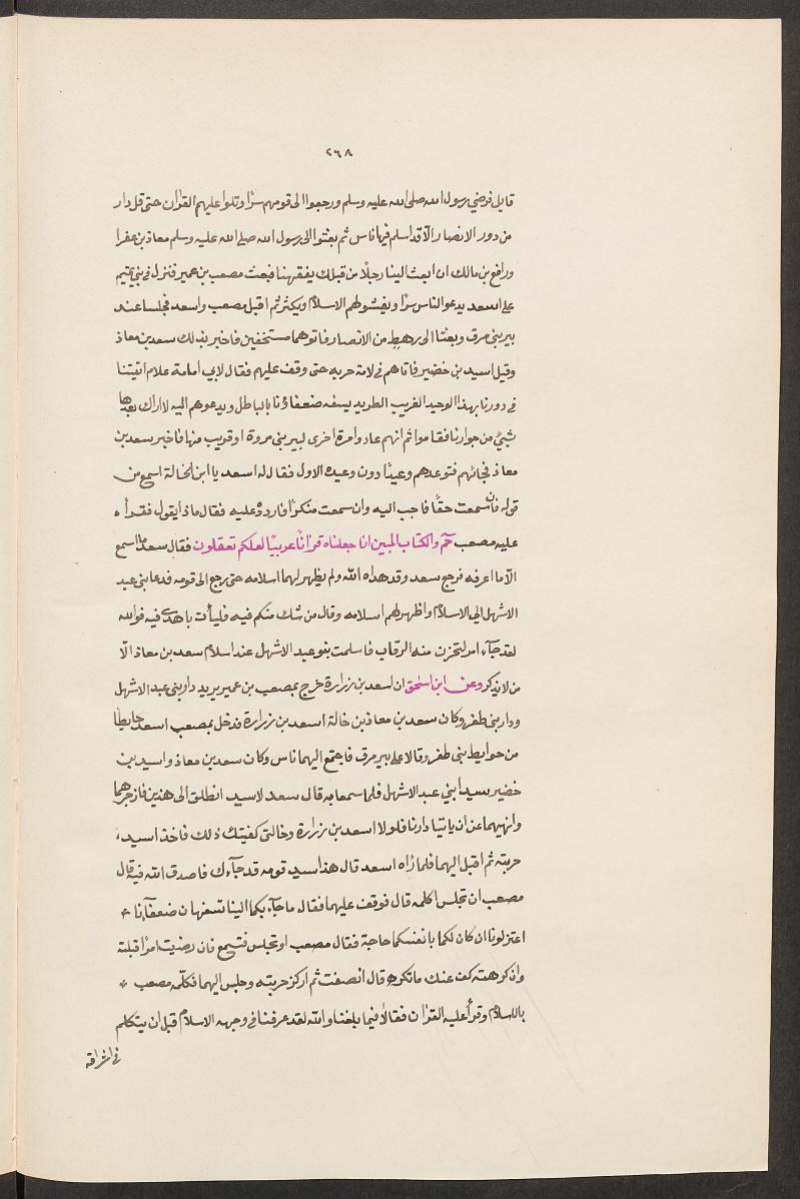 ٢٦٨
قابل فرضي رسول الله صلى الله عليه وسلم ورجعوا الى قومهم سرًا وتلوا عليهم القرٰان حتى قل دار
من دور الانصار الّا قد اسلم فيها ناس ثم بعثوا الى رسول الله صلى الله عليه وسلم معاذ بن عفرا
ورافع بن مالك ان ابعث الينا رجلًا من قبلك يفقهنا فبعث مصعب بن عمير فنزل في بني تميم
على اسعد يدعو الناس سرًا ويفشو لهم الاسلام ويكثر ثم اقبل مصعب واسعد فجلسا عند
بير بني مرق وبعثا الى رهط من الانصار فاتوهما مستخفين فاخبر بذلك سعد بن معاذ
وقيل اسيد بن خضير فاتاهم في لامة حربه حتى وقف عليهم فقال لابي امامة علام اتيتنا
في دورنا بهذا الوحيد الغريب الطريد يسفه ضعفاؤنا بالباطل ويدعوهم اليه لا اراك بعدها
بشئ من جوارنا فقاموا ثم انهم عادوا مرة اخرى لبير بني مروة او قريب منها فاخبر سعد بن
معاذ فجائهم فتوعدهم وعيدًا دون وعيده الاول فقال له اسعد يا ابن الخالة اسمع من
قوله فان سمعت حقًا فاجب اليه وان سمعت منكرًا فاردده عليه فقال ماذا يقول فقرأ
عليه مصعب حٓم والكتاب المبين انا جعلناه قرآنًا عربيًا لعلكم تعقلون فقال سعد ما اسمع
الّا ما اعرفه فرجع سعد وقد هداه الله ولم يظهر لهما اسلامه حتى رجع الى قومه فدعا بني عبد
الاشهل الى الاسلام واظهر لهم اسلامه وقال من شك منكم فيه فليأت باهدى فيه فوالله
لقد جآء امر لتحزن منه الرقاب فاسلمت بنو عبد الاشهل عند اسلام سعد بن معاذ الّا
من لا يذكر وعن ابن اسحق ان اسعد بن زرارة خرج بمصعب بن عمير يريد دار بني عبد الاشهل
ودار بني ظفر وكان سعد بن معاذ بن خالة اسعد بن زرارة فدخل بمصعب اسعد حايطا
من حوايط بني ظفر وقالا على بير مرق فاجتمع اليهما ناس وكان سعد بن معاذ واسيد بن
خضير سيدا بني عبد الاشهل فلما سمعا به قال سعد لاسيد انطلق الى هذين فازجرهما
وانهيهما عن ان ياتيا دارنا فلولا اسعد بن زرارة وخالتي كفيتك ذلك فاخذ اسيد
حربته ثم اقبل اليهما فلما رٰاه اسعد قال هذا سيد قومه قد جآءك فاصدق الله فيه قال
مصعب ان تجلس اكلمه قال فوقف عليهما فقال ما جآء بكما الينا تسفهان ضعفآءنا
اعتزلونا ان كان لكما بانفسكما حاجة فقال مصعب او تجلس فتسمع فان رضيت امرًا قبلته
وان كرهته كف عنك ما تكره قال انصفت ثم اركز حربته وجلس اليهما فكلّمه مصعب
بالاسلام وقرأ عليه القرٰان فقالا فيما بلغنا والله لقد عرفنا في وجهه الاسلام قبل ان يتكلم
في اشراقه